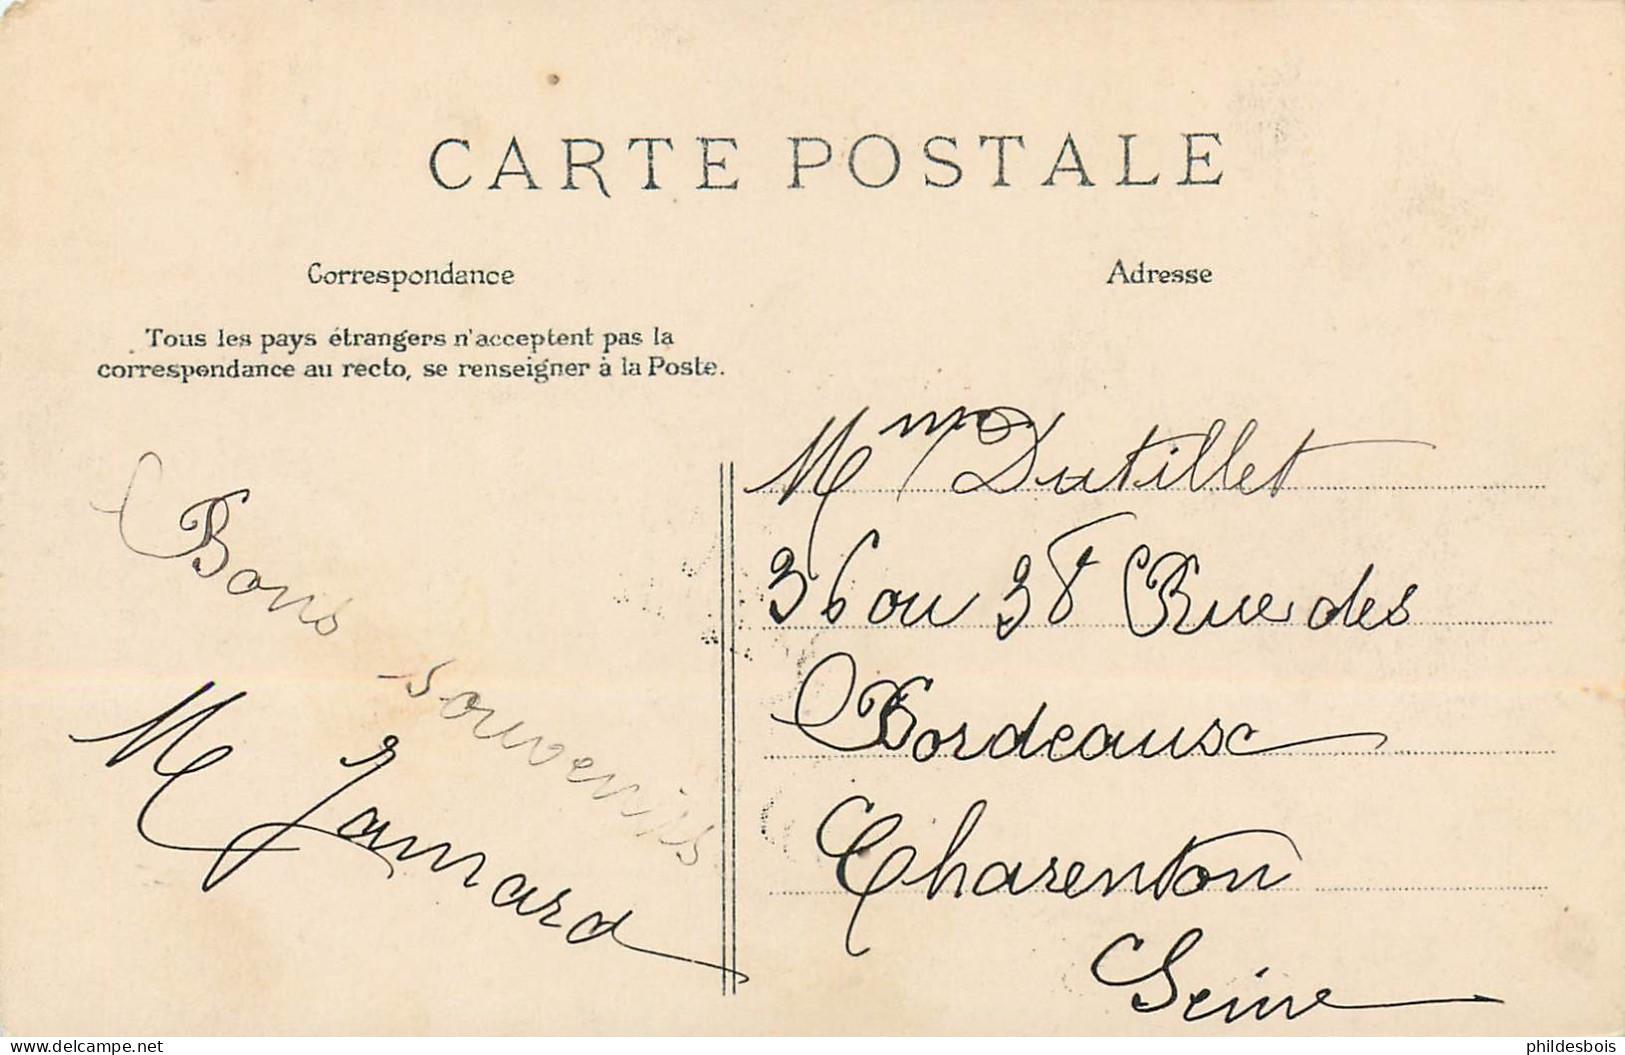 CARTE POSTALE
Correspondance
Tous les pays étrangers n'acceptent pas la
correspondance au recto, se renseigner à la Poste.
Bons souvenirs
M Jamard
Adresse
Mme Dutillet
36 ou 38 Rue des
Bordeaux
Charenton
Seine
delcampe.net
phildesbois